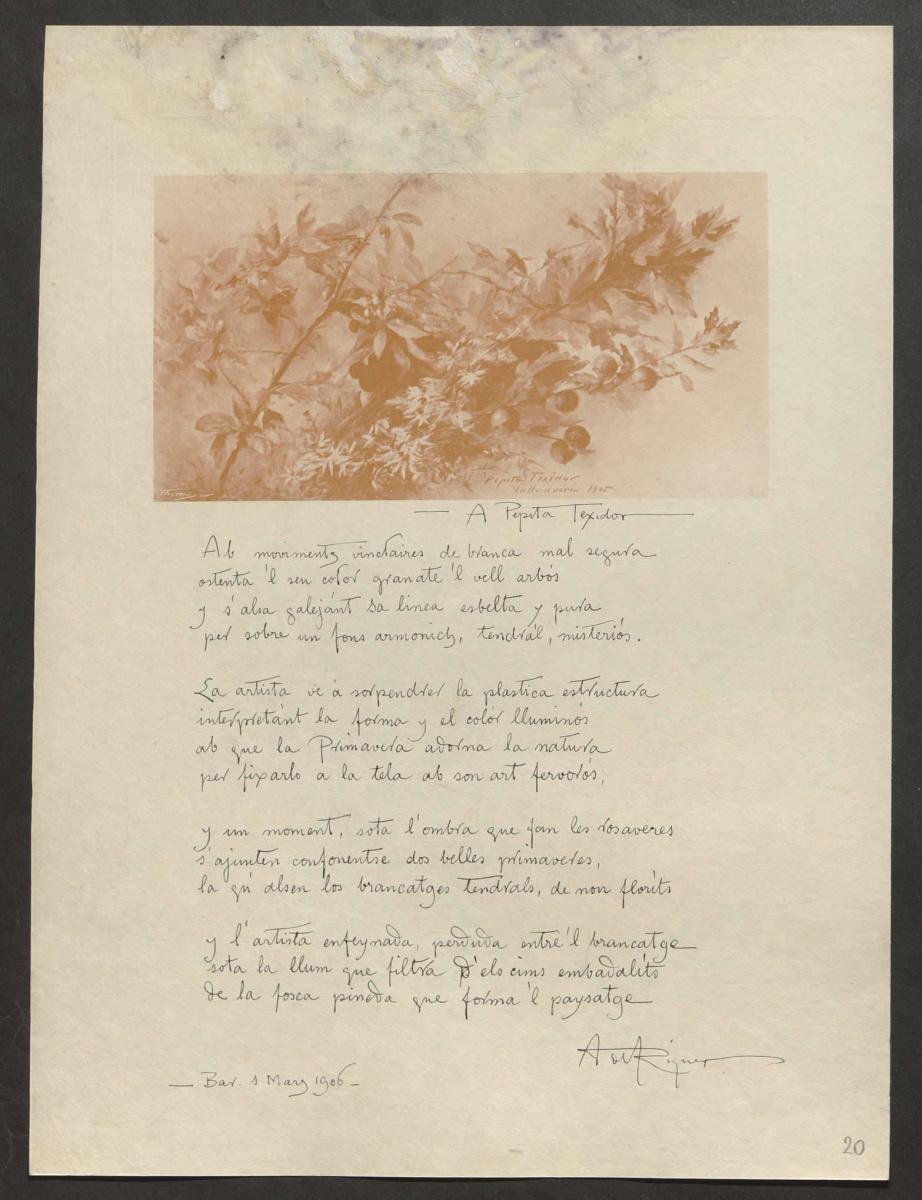 Pepita Texidor
Vallvidrera 1905
Thomas
— A Pepita Texidor —
Ab moviments vinclaires de branca mal segura
ostenta 'l seu color granate 'l vell arbós
y s'alsa galejánt sa linea esbelta y pura
per sobre un fons armonich, tendrál, misteriós.
La artista ve á sorpendrer la plastica estructura
interpretánt la forma y el colór lluminós
ab que la Primavera adorna la natura
per fixarlo a la tela ab son art fervorós;
y un moment, sota l'ombra que fan les rosaveres
s'ajunten confonentse dos belles primaveres,
la qu' alsen los brancatges tendrals, de nou florits
y l'artista enfeynada, perduda entre'l brancatge
sota la llum que filtra d'els cims embadalits
de la fosca pineda que forma 'l paysatge
A de Riquer
— Bar. 1 Mars 1906 —
20